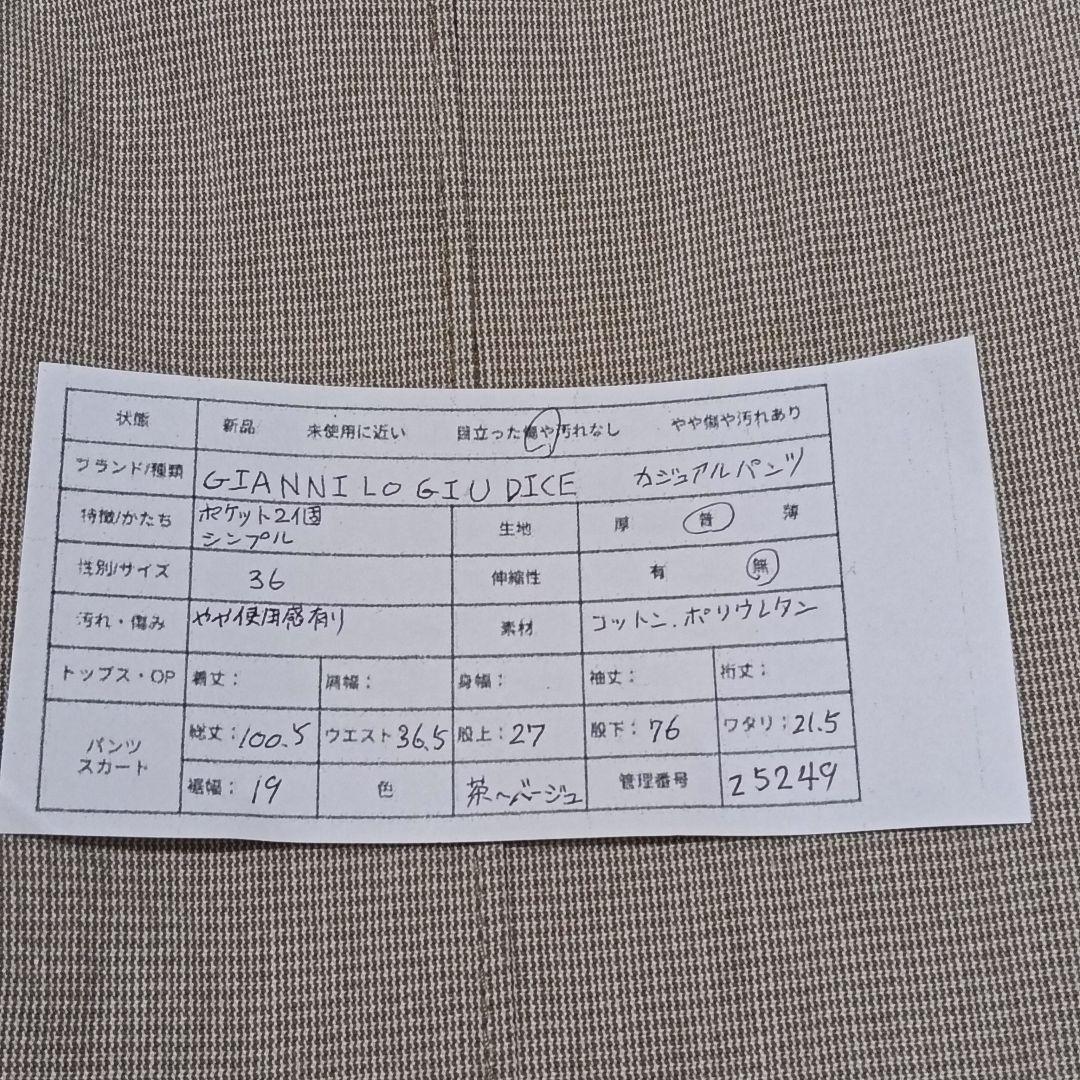 状態 新品 未使用に近い 目立った傷や汚れなし やや傷や汚れあり
ブランド/種類 GIANNI LO GIUDICE カジュアルパンツ
特徴/かたち ポケット2個 生地 厚 普 薄
シンプル
性別/サイズ 36 伸縮性 有 無
汚れ・傷み やや使用感有り 素材 コットン.ポリウレタン
トップス・OP 着丈: 肩幅: 身幅: 袖丈: 裄丈:
パンツ 総丈:100.5 ウエスト36.5 股上:27 股下:76 ワタリ:21.5
スカート 裾幅:19 色 茶〜ベージュ 管理番号 25249